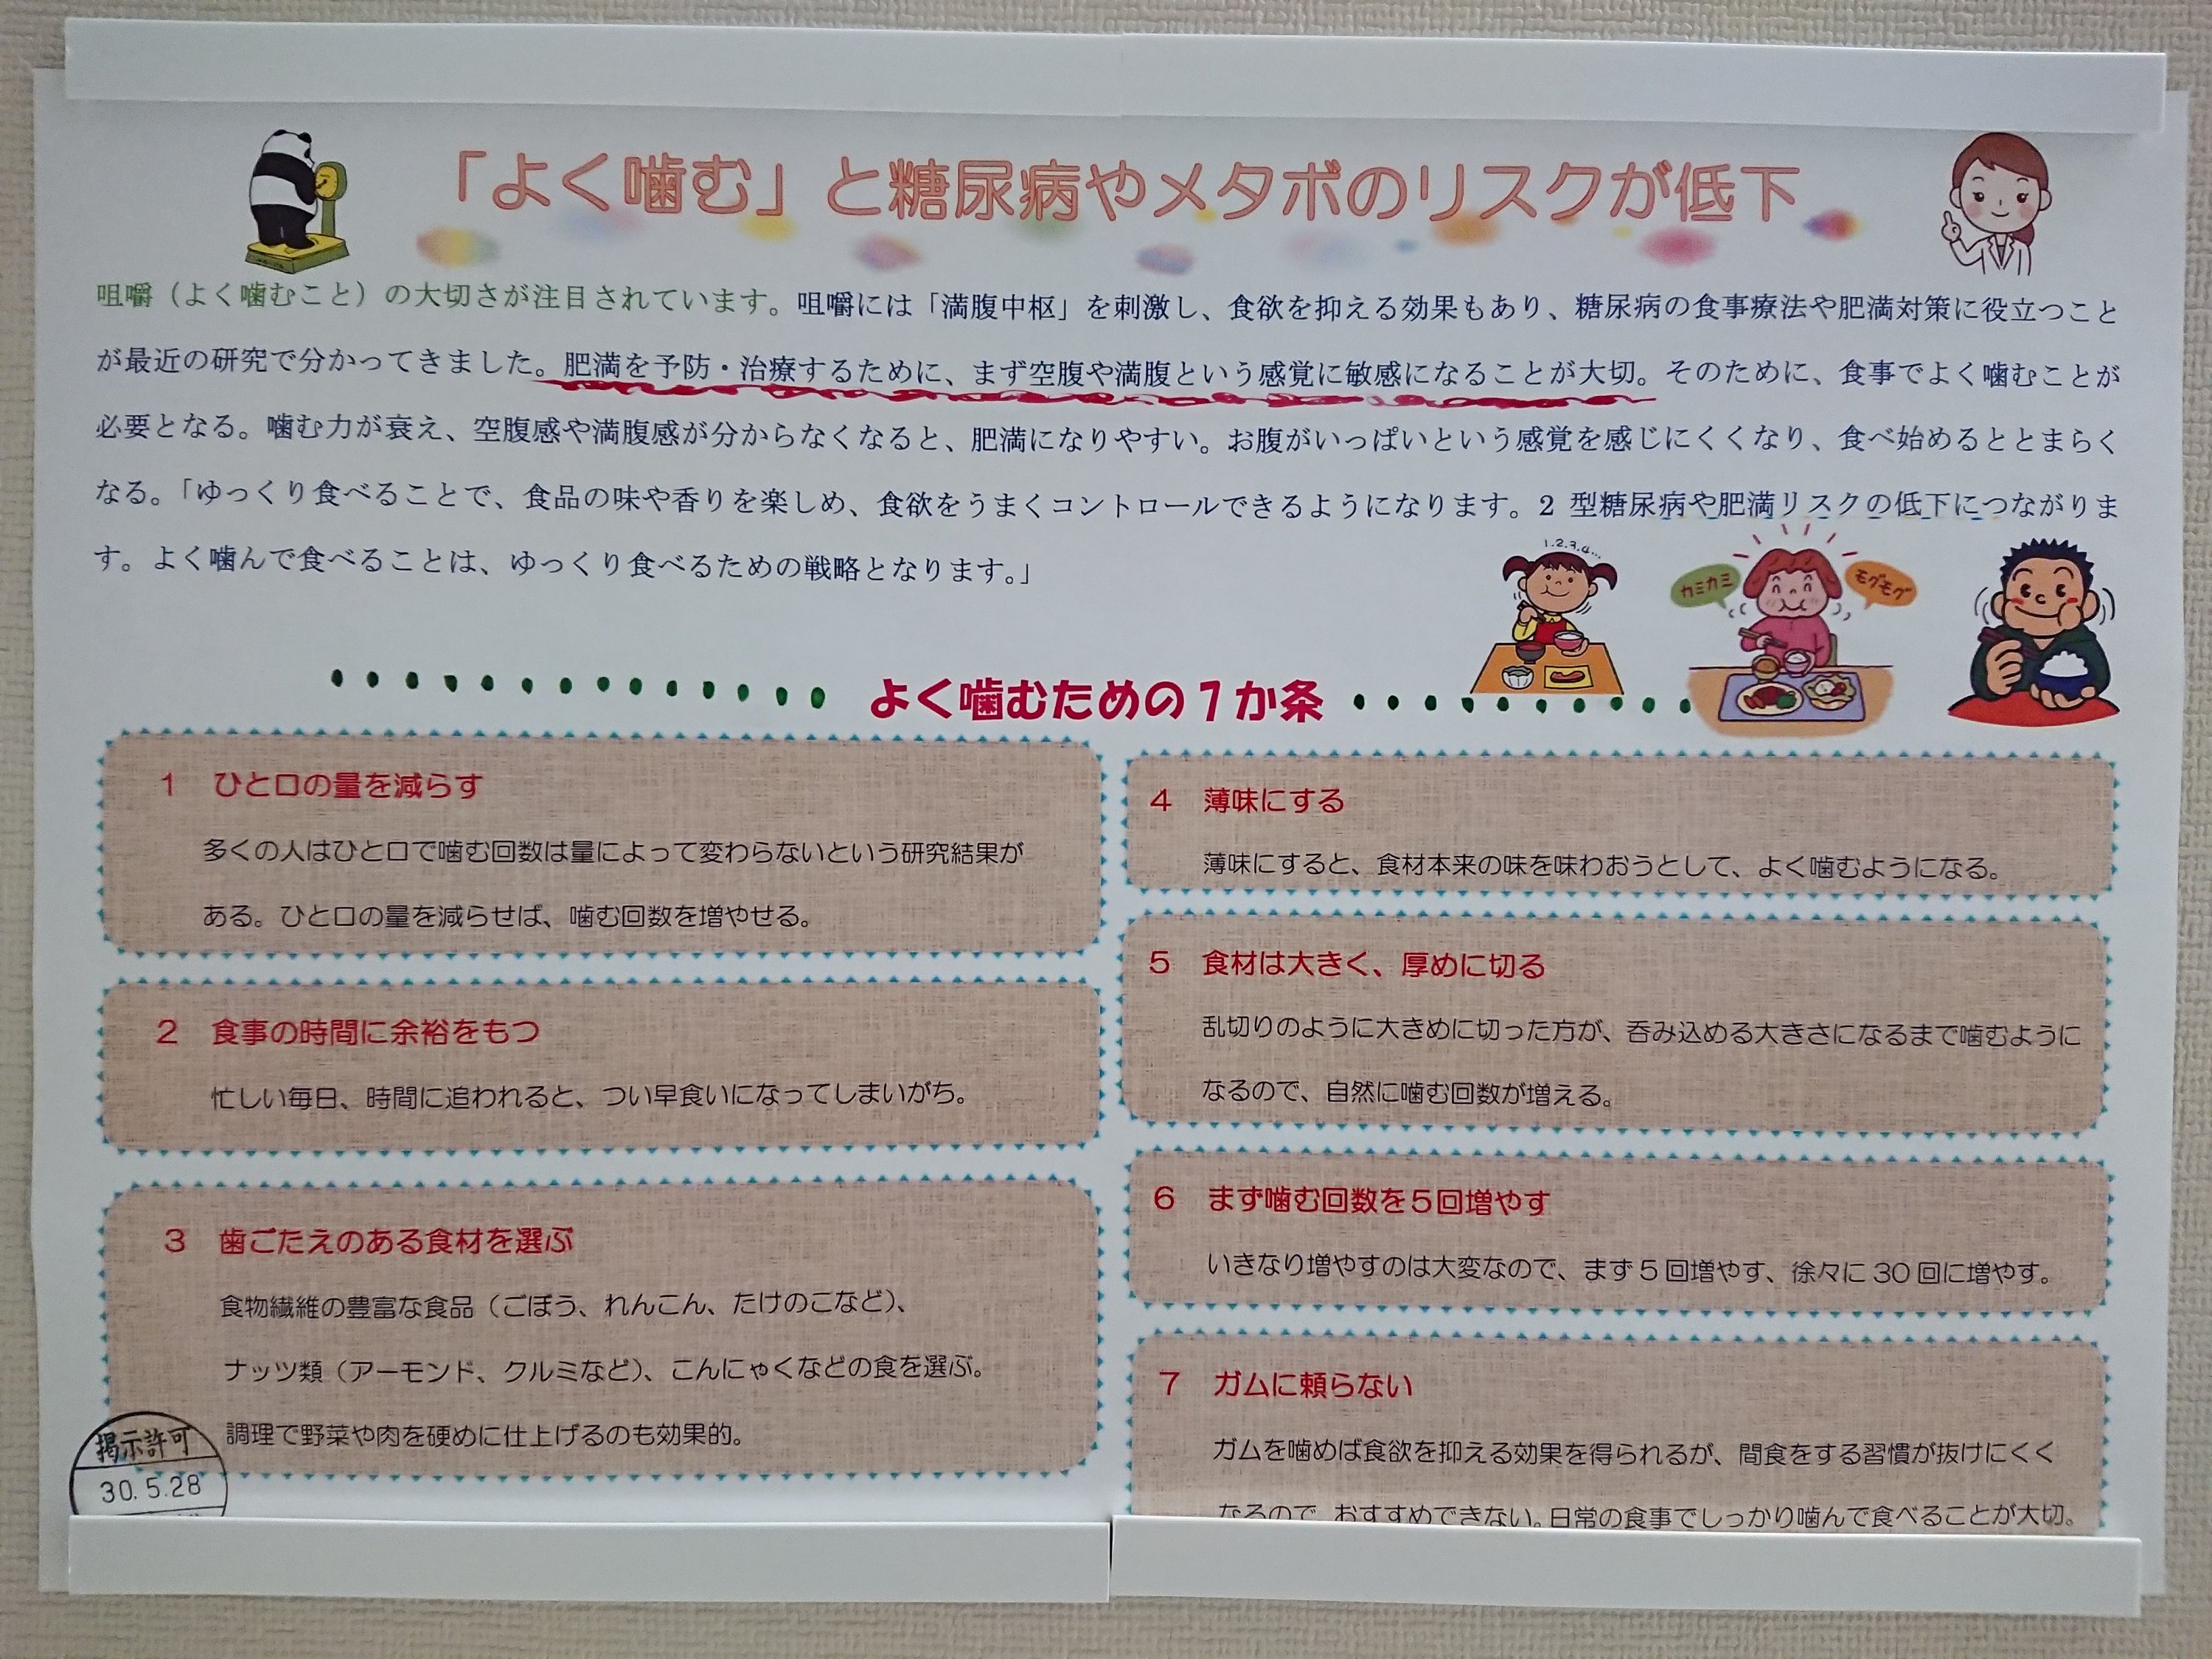 「よく噛む」と糖尿病やメタボのリスクが低下
咀嚼（よく噛むこと）の大切さが注目されています。咀嚼には「満腹中枢」を刺激し、食欲を抑える効果もあり、糖尿病の食事療法や肥満対策に役立つこと
が最近の研究で分かってきました。肥満を予防・治療するために、まず空腹や満腹という感覚に敏感になることが大切。そのために、食事でよく噛むことが
必要となる。噛む力が衰え、空腹感や満腹感が分からなくなると、肥満になりやすい。お腹がいっぱいという感覚を感じにくくなり、食べ始めるととまらく
なる。「ゆっくり食べることで、食品の味や香りを楽しめ、食欲をうまくコントロールできるようになります。2 型糖尿病や肥満リスクの低下につながりま
す。よく噛んで食べることは、ゆっくり食べるための戦略となります。」
1.2.3.4...
カミカミ
モグモグ
よく噛むための７か条
1 ひと口の量を減らす
多くの人はひと口で噛む回数は量によって変わらないという研究結果が
ある。ひと口の量を減らせば、噛む回数を増やせる。
2 食事の時間に余裕をもつ
忙しい毎日、時間に追われると、つい早食いになってしまいがち。
3 歯ごたえのある食材を選ぶ
食物繊維の豊富な食品（ごぼう、れんこん、たけのこなど）、
ナッツ類（アーモンド、クルミなど）、こんにゃくなどの食を選ぶ。
調理で野菜や肉を硬めに仕上げるのも効果的。
掲示許可
30.5.28
4 薄味にする
薄味にすると、食材本来の味を味わおうとして、よく噛むようになる。
5 食材は大きく、厚めに切る
乱切りのように大きめに切った方が、呑み込める大きさになるまで噛むように
なるので、自然に噛む回数が増える。
6 まず噛む回数を５回増やす
いきなり増やすのは大変なので、まず５回増やす、徐々に 30 回に増やす。
7 ガムに頼らない
ガムを噛めば食欲を抑える効果を得られるが、間食をする習慣が抜けにくく
なるので、おすすめできない。日常の食事でしっかり噛んで食べることが大切。